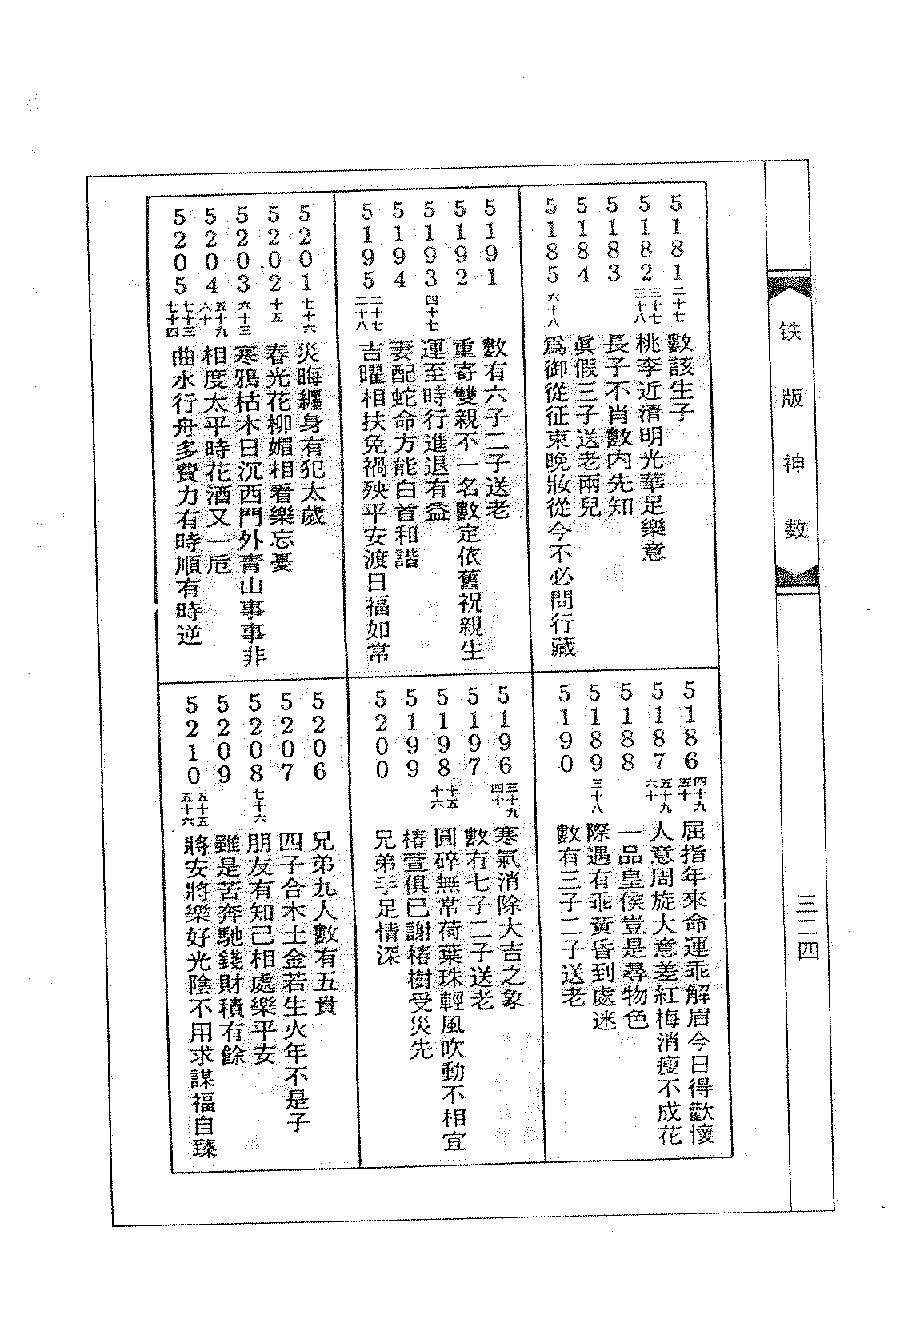 铁版神数
三一四
5181 二十七 數該生子
5182 三十七 三十八 桃李近清明光華足樂意
5183 長子不肖數內先知
5184 眞假三子送老兩兒
5185 六十八 爲御從征東晚妝從今不必問行藏
5186 四十九 五十 屈指年來命運乖解眉今日得歡懷
5187 五十九 六十 人意周旋大意差紅梅消瘦不成花
5188 一品皇侯豈是尋物色
5189 三十八 際遇有乖黃昏到處迷
5190 數有三子二子送老
5191 數有六子二子送老
5192 重寄雙親不一名數定依舊祝親生
5193 四十七 運至時行進退有益
5194 妻配蛇命方能白首和諧
5195 二十七 二十八 吉曜相扶免禍殃平安渡日福如常
5196 三十九 四十 寒氣消除大吉之象
5197 數有七子二子送老
5198 十五 十六 圓碎無常荷葉珠輕風吹動不相宜
5199 椿萱俱已謝椿樹受災先
5200 兄弟手足情深
5201 七十六 災晦纏身有犯太歲
5202 十五 春光花柳媚相看樂忘憂
5203 六十三 寒鴉枯木日沉西門外青山事事非
5204 五十九 六十 相度太平時花酒又一厄
5205 七十三 七十四 曲水行舟多費力有時順有時逆
5206 兄弟九人數有五貴
5207 四子合木土金若生火年不是子
5208 七十六 朋友有知己相處樂平安
5209 雖是苦奔馳錢財積有餘
5210 五十五 五十六 將安將樂好光陰不用求謀福自臻